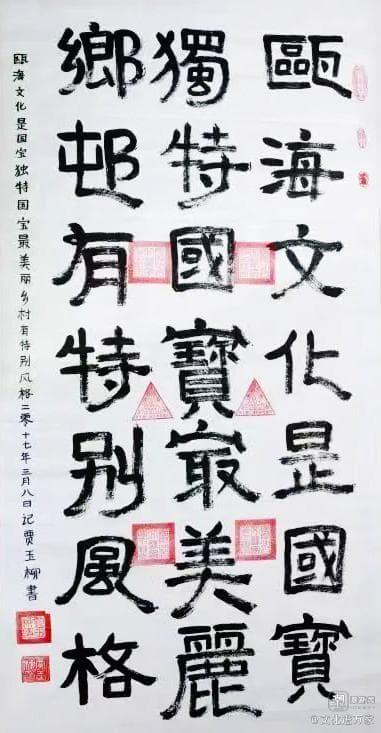 甌海文化是國寶
獨特國寶最美麗
鄉邨有特别風格
瓯海文化是国宝独特国宝最美丽乡村有特别风格二零十七年三月八日记贾玉柳书
@文化老万家